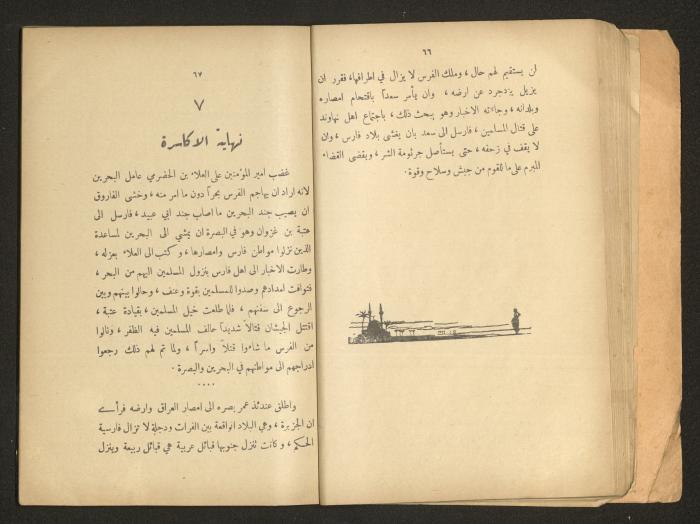 ٦٦
لن يستقيم لهم حال ، وملك الفرس لا يزال في اطرافها، فقرر ان
يزيل يزدجرد عن ارضه ، وان يأمر سعداً باقتحام امصاره
وبلدانه ، وجاءته الاخبار وهو يبحث ذلك ، باجتماع اهل نهاوند
على قتال المسلمين ، فارسل الى سعد بان يغشى بلاد فارس ، وان
لا يقف في زحفه ، حتى يستأصل جرثومة الشر ، ويقضى القضاء
المبرم على ما للقوم من جيش وسلاح وقوة .
٦٧
٧
نهاية الاكاسرة
غضب امير المؤمنين على العلاء بن الحضرمي عامل البحرين
لانه اراد ان يهاجم الفرس بحراً دون ما امر منه ، وخشى الفاروق
ان يصيب جند البحرين ما اصاب جند ابي عبيد ، فارسل الى
عتبة بن غزوان وهو في البصرة ان يمشي الى البحرين لمساعدة
الذين نزلوا مواطن فارس وامصارها ، وكتب الى العلاء بعزله ،
وطارت الاخبار الى اهل فارس بنزول المسلمين اليهم من البحر ،
فتوافت امدادهم وصدوا للمسلمين بقوة وعنف ، وحالوا بينهم وبين
الرجوع الى سفنهم ، فلما طلعت خيل المسلمين ، بقيادة عتبة ،
اقتتل الجيشان قتالاً شديداً حالف المسلمين فيه الظفر ، ونالوا
من الفرس ما شاءوا قتلاً واسراً ، ولما تم لهم ذلك رجعوا
ادراجهم الى مواطنهم في البحرين والبصرة .
....
واطلق عندئذ عمر بصره الى امصار العراق وارضه فرأى
ان الجزيرة ، وهي البلاد الواقعة بين الفرات ودجلة لا تزال فارسية
الحكم ، وكانت تنزل جنوبها قبائل عربية هي قبائل ربيعة وينزل